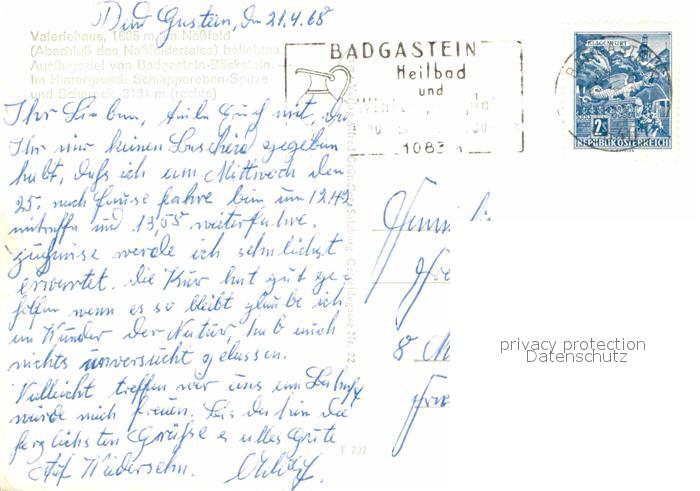 Bad Gastein, den 21.4.68
Valeriehaus, 1605 m, im Naßfeld
(Abschluß des Naßfeldertales) beliebtes
Ausflugsziel von Badgastein-Böckstein.
Im Hintergrund: Schlapperebenspitze
und Schareck, 3131 m (rechts)
BADGASTEIN
Heilbad
und
1083
KLAGENFURT
2S
REPUBLIK ÖSTERREICH
Ihr Lieben, teile Euch mit, da
Ihr mir keinen Bescheid gegeben
habt, daß ich am Mittwoch den
25. nach Hause fahre bin um 12.42
eintreffe und 13,05 weiterfahre.
werde ich sehnlichst
erwartet. Die Kur hat gut ge-
holfen wenn es so bleibt glaube ich
an Wunder der Natur, hab auch
nichts unversucht gelassen.
Vielleicht treffen wir uns am Bahnhof
würde mich freuen. Bis dahin die
herzlichsten Grüße u alles Gute
Auf Wiedersehn.
8 M
F 707
privacy protection
Datenschutz